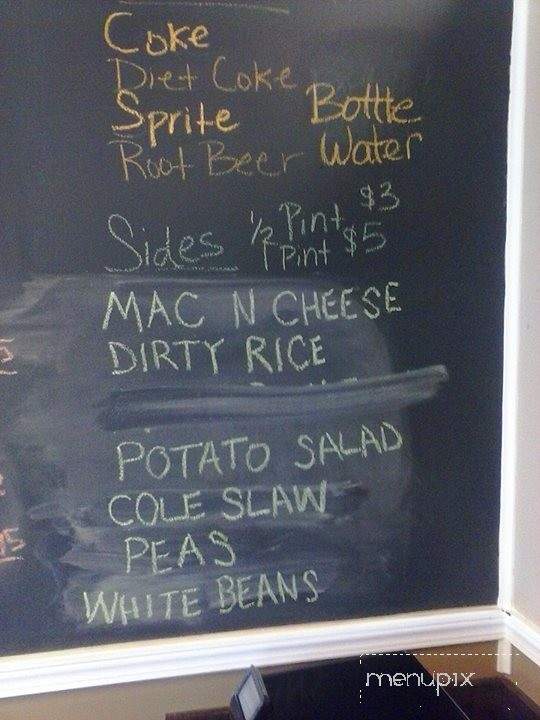 Coke
Diet Coke
Sprite Bottle
Root Beer Water
Sides 1/2 Pint $3
1 Pint $5
MAC N CHEESE
DIRTY RICE
POTATO SALAD
COLE SLAW
PEAS
WHITE BEANS
menupix